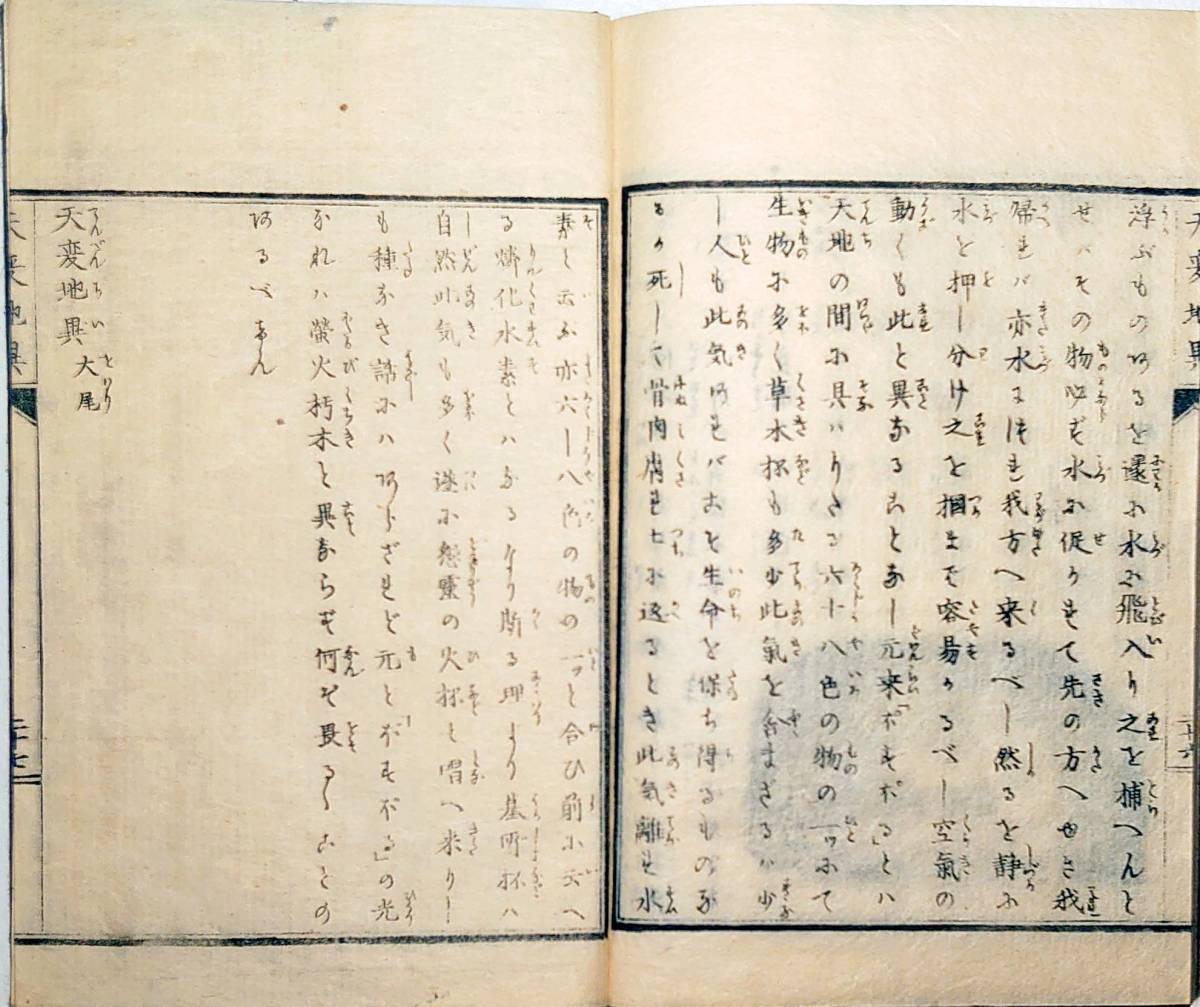 浮ぶものあるを還に水に飛入り之を捕へんと
せバその物必ず水に促されて先の方へゆき我
帰れバ亦水につれ我方へ来るべし然るを静に
水を押し分け之を掴まば容易かるべし空氣の
動くも此と異なることなし元来「ポスポル」とハ
天地の間に具はりたる六十八色の物の一つにて
生物に多く草木抔も多少此氣を含まざるハ少
し人も此気あれバこそ生命を保ち得るものな
るが死して骨肉腐れ土に返るとき此気離れ水
素と云ふ亦六十八色の物の一つと合ひ前に云へ
る燐化水素とハなるなり斯る理より墓所抔ハ
自然此気も多く遂に怨霊の火抔と唱へ来りし
も種なき話にハあらざれど元と「ポスポル」の光
なれハ螢火朽木と異ならず何そ畏るゝことの
あるべけん
天変地異 大尾
天変地異
二十七
天変地異
二十六